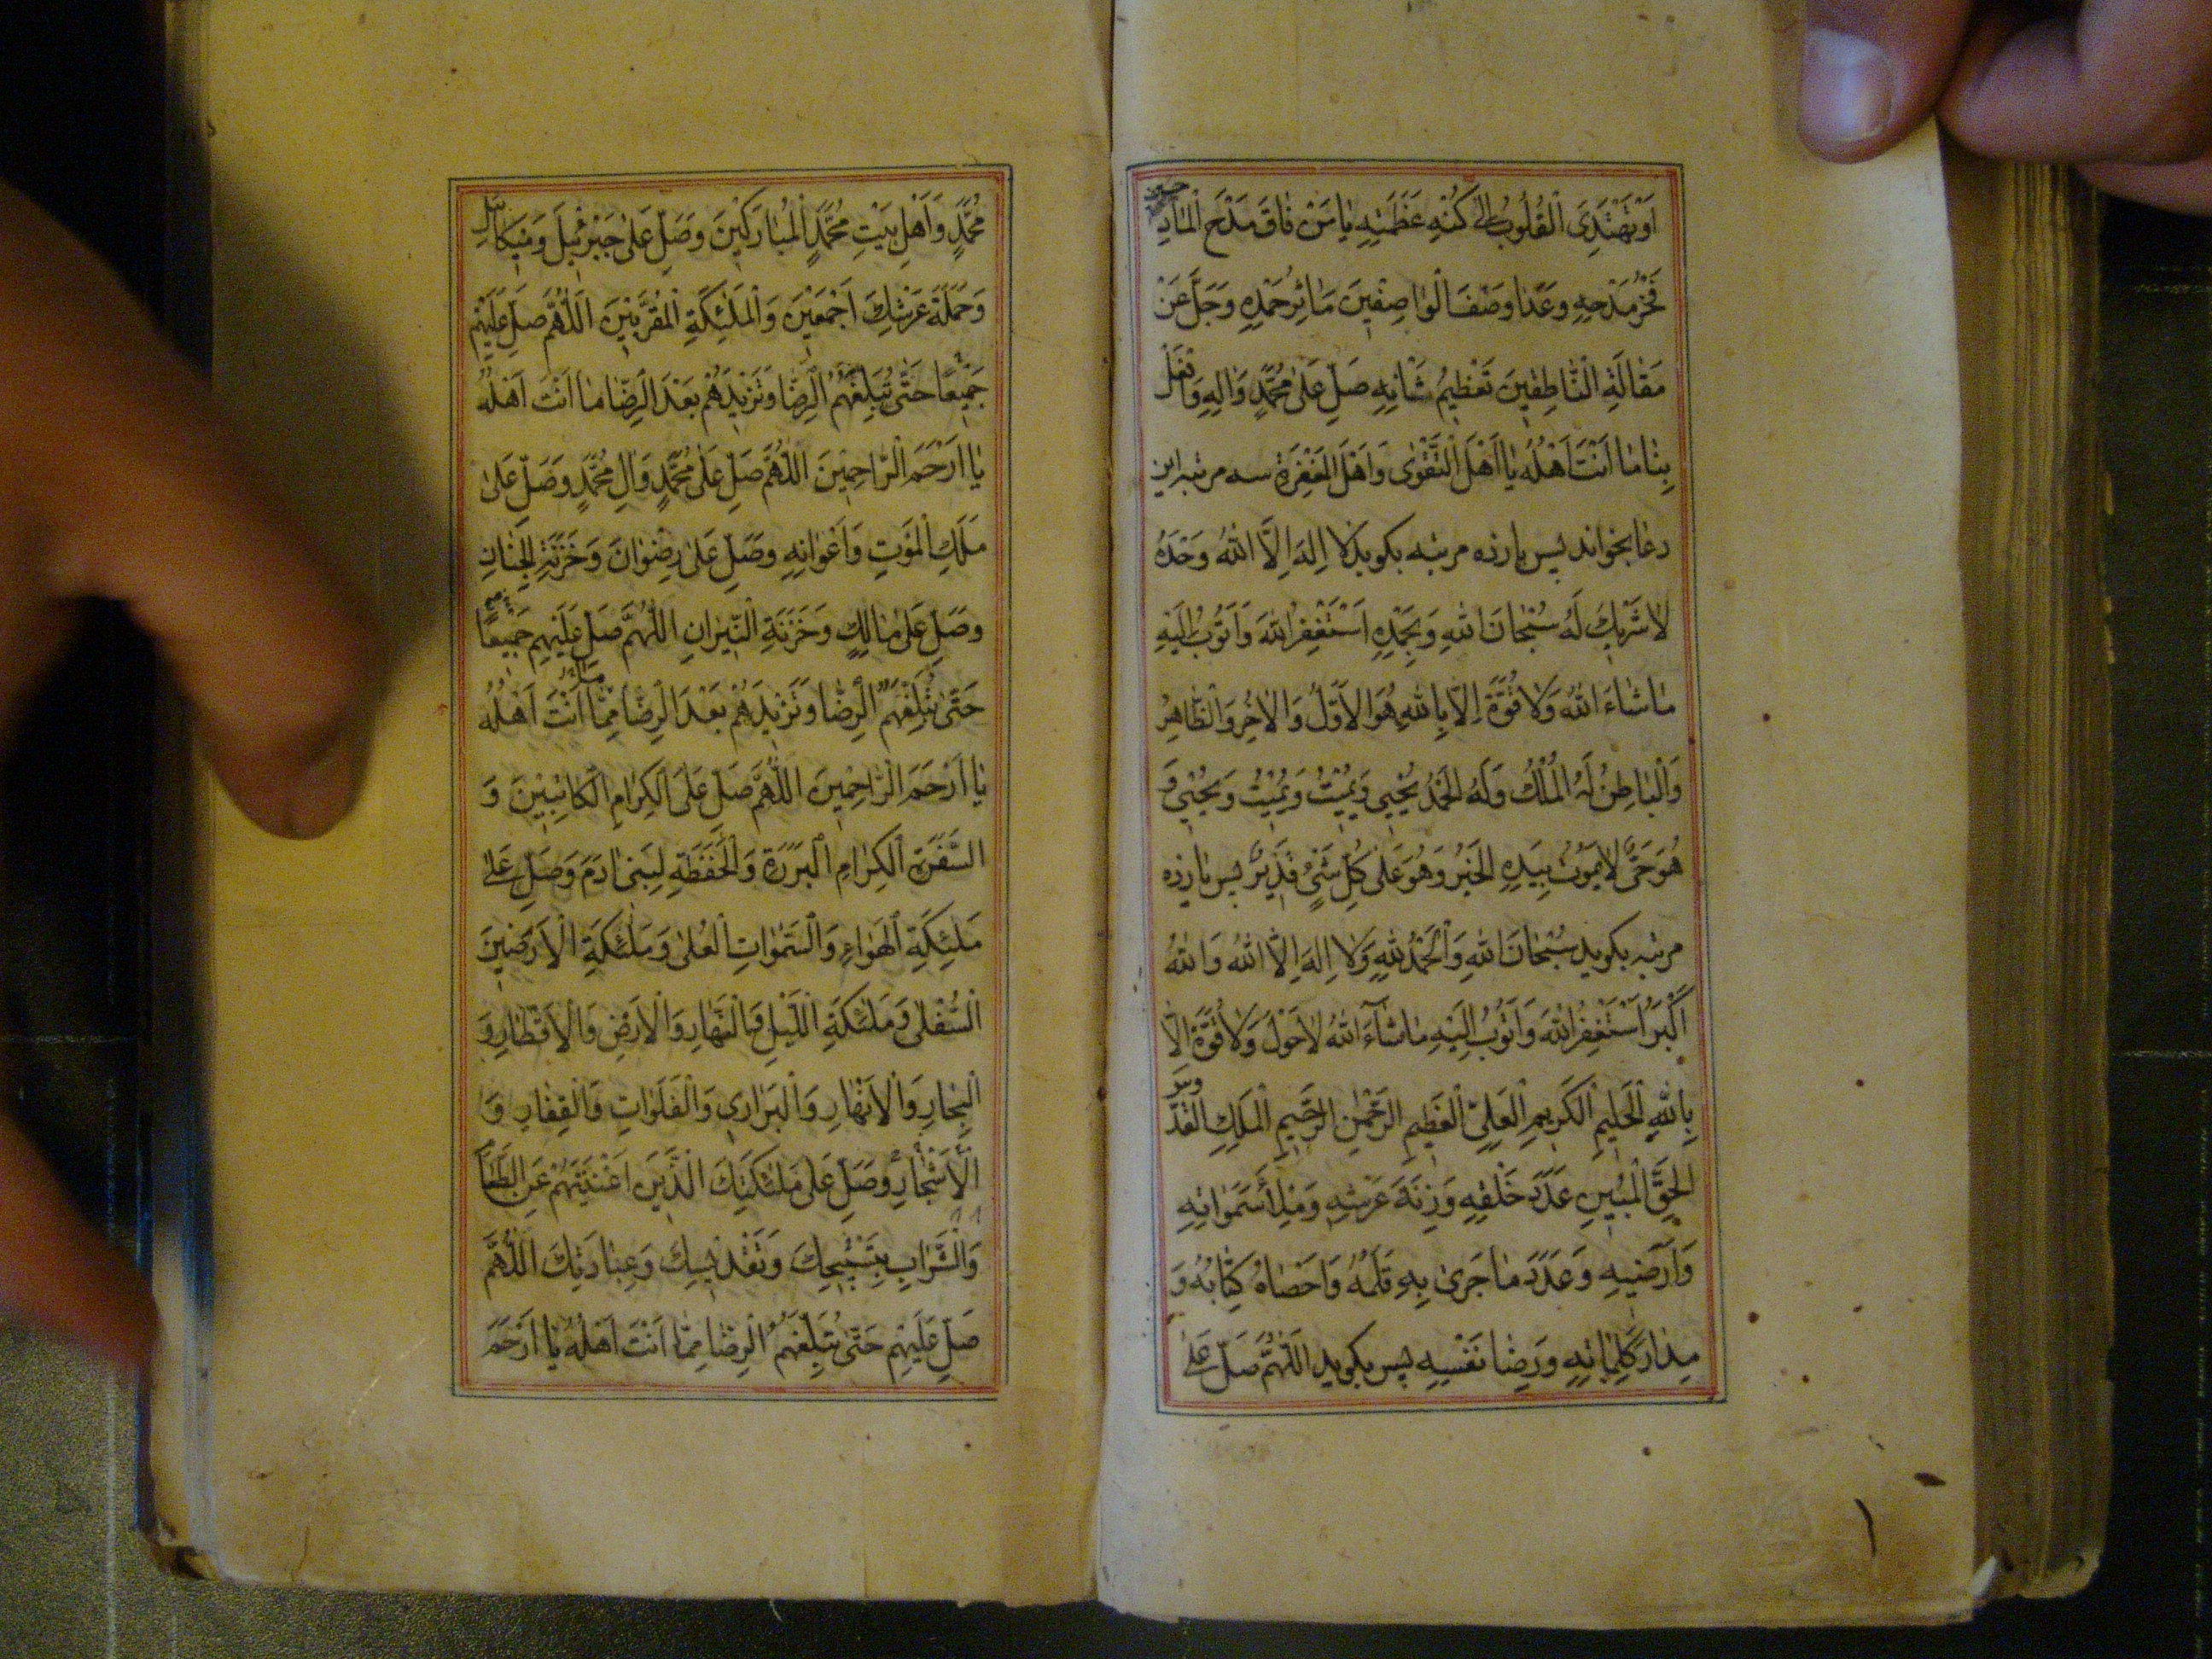 اَوْ تَهْتَدِیَ الْقُلُوبُ اِلٰی کُنْهِ عَظَمَتِهِ یٰا مَنْ فٰاقَ مَدْحَ الْمٰادِحینَ
فَخْرُ مَدْحِهِ وَعَدٰا وَصْفَ الْوٰاصِفینَ مَاٰثِرُ حَمْدِهِ وَجَلَّ عَنْ
مَقٰالَةِ النّٰاطِقینَ تَعْظیمُ شَاْنِهِ صَلِّ عَلیٰ مُحَمَّدٍ وَاٰلِهِ وَافْعَلْ
بِنٰا مٰا اَنْتَ اَهْلُهُ یٰا اَهْلَ التَّقْویٰ وَاَهْلَ الْمَغْفِرَةِ سه مرتبه این
دعا بخواند پس پازده مرتبه بکوید لٰا اِلٰهَ اِلَّا اللّٰهُ وَحْدَهُ
لٰا شَرِیكَ لَهُ سُبْحٰانَ اللّٰهِ وَبِحَمْدِهِ اَسْتَغْفِرُ اللّٰهَ وَاَتُوبُ اِلَیْهِ
مٰا شٰاءَ اللّٰهُ وَلٰا قُوَّةَ اِلّٰا بِاللّٰهِ هُوَ الْاَوَّلُ وَالْاٰخِرُ وَالظّٰاهِرُ
وَالْبٰاطِنُ لَهُ الْمُلْكُ وَلَهُ الْحَمْدُ یُحْیی وَیُمیتُ وَیُمیتُ وَیُحْیی وَ
هُوَ حَیٌّ لٰا یَمُوتُ بِیَدِهِ الْخَیْرُ وَهُوَ عَلیٰ کُلِّ شَیْءٍ قَدیرٌ پس پازده
مرتبه بکوید سُبْحٰانَ اللّٰهِ وَالْحَمْدُ لِلّٰهِ وَلٰا اِلٰهَ اِلَّا اللّٰهُ وَاللّٰهُ
اَکْبَرُ اَسْتَغْفِرُ اللّٰهَ وَاَتُوبُ اِلَیْهِ مٰا شٰآءَ اللّٰهُ لٰا حَوْلَ وَلٰا قُوَّةَ اِلّٰا
بِاللّٰهِ الْحَلیمِ الْکَریمِ الْعَلِیِّ الْعَظیمِ الرَّحْمٰنِ الرَّحیمِ الْمَلِكِ الْقُدُّوسِ
الْحَقِّ الْمُبینِ عَدَدَ خَلْقِهِ وَزِنَةَ عَرْشِهِ وَمِلْأَ سَمٰوٰاتِهِ
وَاَرَضیهِ وَعَدَدَ مٰا جَریٰ بِهِ قَلَمُهُ وَاَحْصٰاهُ کِتٰابُهُ وَ
مِدٰادَ کَلِمٰاتِهِ وَرِضٰا نَفْسِهِ پس بکوید اَللّٰهُمَّ صَلِّ عَلیٰ
مُحَمَّدٍ وَاَهْلِ بَیْتِ مُحَمَّدٍ الْمُبٰارَکینَ وَصَلِّ عَلیٰ جَبْرَئیلَ وَمیکٰائیلَ
وَحَمَلَةِ عَرْشِكَ اَجْمَعینَ وَالْمَلٰئِکَةِ الْمُقَرَّبینَ اَللّٰهُمَّ صَلِّ عَلَیْهِمْ
جَمیعًا حَتّٰی تُبَلِّغَهُمُ الرِّضٰا وَتَزیدَهُمْ بَعْدَ الرِّضٰا مٰا اَنْتَ اَهْلُهُ
یٰا اَرْحَمَ الرّٰاحِمینَ اَللّٰهُمَّ صَلِّ عَلیٰ مُحَمَّدٍ وَاٰلِ مُحَمَّدٍ وَصَلِّ عَلیٰ
مَلَكِ الْمَوْتِ وَاَعْوٰانِهِ وَصَلِّ عَلیٰ رِضْوٰانَ وَخَزَنَةِ الْجِنٰانِ
وَصَلِّ عَلیٰ مٰالِكٍ وَخَزَنَةِ النّیرٰانِ اَللّٰهُمَّ صَلِّ عَلَیْهِمْ جَمیعًا
حَتّٰی تُبَلِّغَهُمُ الرِّضٰا وَتَزیدَهُمْ بَعْدَ الرِّضٰا مِمّٰا اَنْتَ اَهْلُهُ
یٰا اَرْحَمَ الرّٰاحِمینَ اَللّٰهُمَّ صَلِّ عَلَی الْکِرٰامِ الْکٰاتِبینَ وَ
السَّفَرَةِ الْکِرٰامِ الْبَرَرَةِ وَالْحَفَظَةِ لِبَنی اٰدَمَ وَصَلِّ عَلیٰ
مَلٰئِکَةِ الْهَوٰاءِ وَالسَّمٰوٰاتِ الْعُلیٰ وَمَلٰئِکَةِ الْاَرَضینَ
السُّفْلیٰ وَمَلٰئِکَةِ اللَّیْلِ وَالنَّهٰارِ وَالْاَرْضِ وَالْاَقْطٰارِ وَ
الْبِحٰارِ وَالْاَنْهٰارِ وَالْبَرٰاری وَالْفَلَوٰاتِ وَالْقِفٰارِ وَ
الْاَشْجٰارِ وَصَلِّ عَلیٰ مَلٰئِکَتِكَ الَّذینَ اَغْنَیْتَهُمْ عَنِ الطَّعٰامِ
وَالشَّرٰابِ بِتَسْبیحِكَ وَتَقْدیسِكَ وَعِبٰادَتِكَ اَللّٰهُمَّ
صَلِّ عَلَیْهِمْ حَتّٰی تُبَلِّغَهُمُ الرِّضٰا مِمّٰا اَنْتَ اَهْلُهُ یٰا اَرْحَمَ